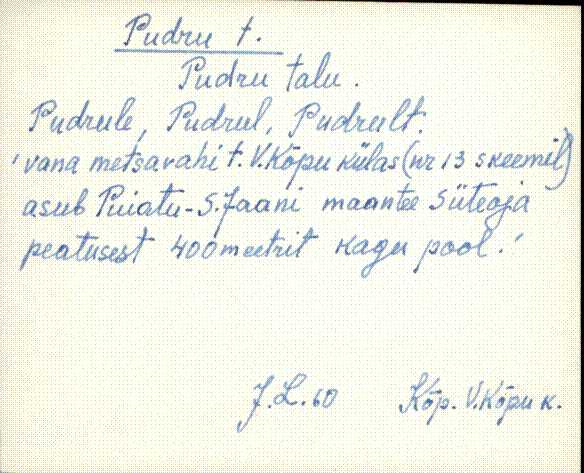 Pudru t.
Pudru talu.
Pudrule, Pudrul, Pudrult.
'vana metsavahi t. V.Kõpu külas (nr 13 skeemil)
asub Puiatu-S.Jaani maantee Süteoja
peatusest 400 meetrit kagu pool.'
J.L.60 Kõp. V.Kõpu k.